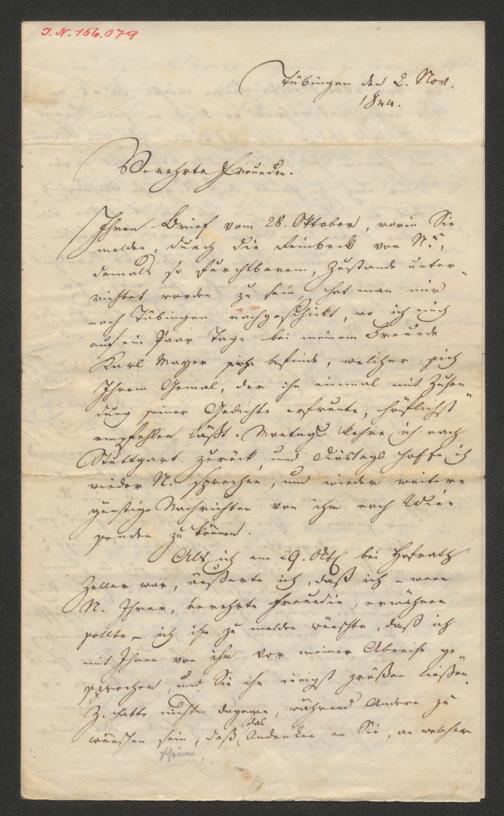 J. N. 156.079
Tübingen den 2. Nov.
1844.
Verehrte Freundin.
Ihren Brief vom 28. Oktober, worin Sie
melden, durch die Reinbeck von N's,
damals so furchtbarem, Zustande unter-
richtet worden zu sein, hat man mir
nach Tübingen nachgeschickt, wo ich mich
auf ein Paar Tage bei meinem Freunde
Karl Mayer befinde, welcher sich
Ihrem Gemal, der ihn einmal mit Zusen-
dung seiner Gedichte erfreute, höflichst
empfehlen läßt. Montags kehre ich nach
Stuttgart zurück, und Dinstags hoffe ich
wieder N. sprechen, und wieder weitere
günstige Nachrichten von ihm nach Wien
senden zu können.
Als ich am 29. Okt. bei Hofrath
Zeller war, äußerte ich, daß ich – wenn
N. Ihrer, verehrte Freundin, erwähnen
sollte – ich ihm zu melden wünschte, daß ich
mit Ihnen von ihm vor meiner Abreise ge-
sprochen, und Sie ihn innigst grüßen ließen.
Z. hatte nichts dagegen, während Andere zu
wünschen sein, daß das Andenken an Sie, an welchem